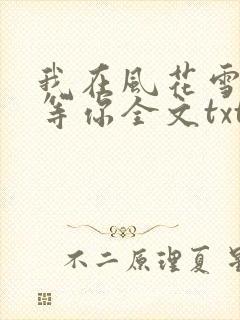 我在風花雪
等你全文txt
不二原理夏